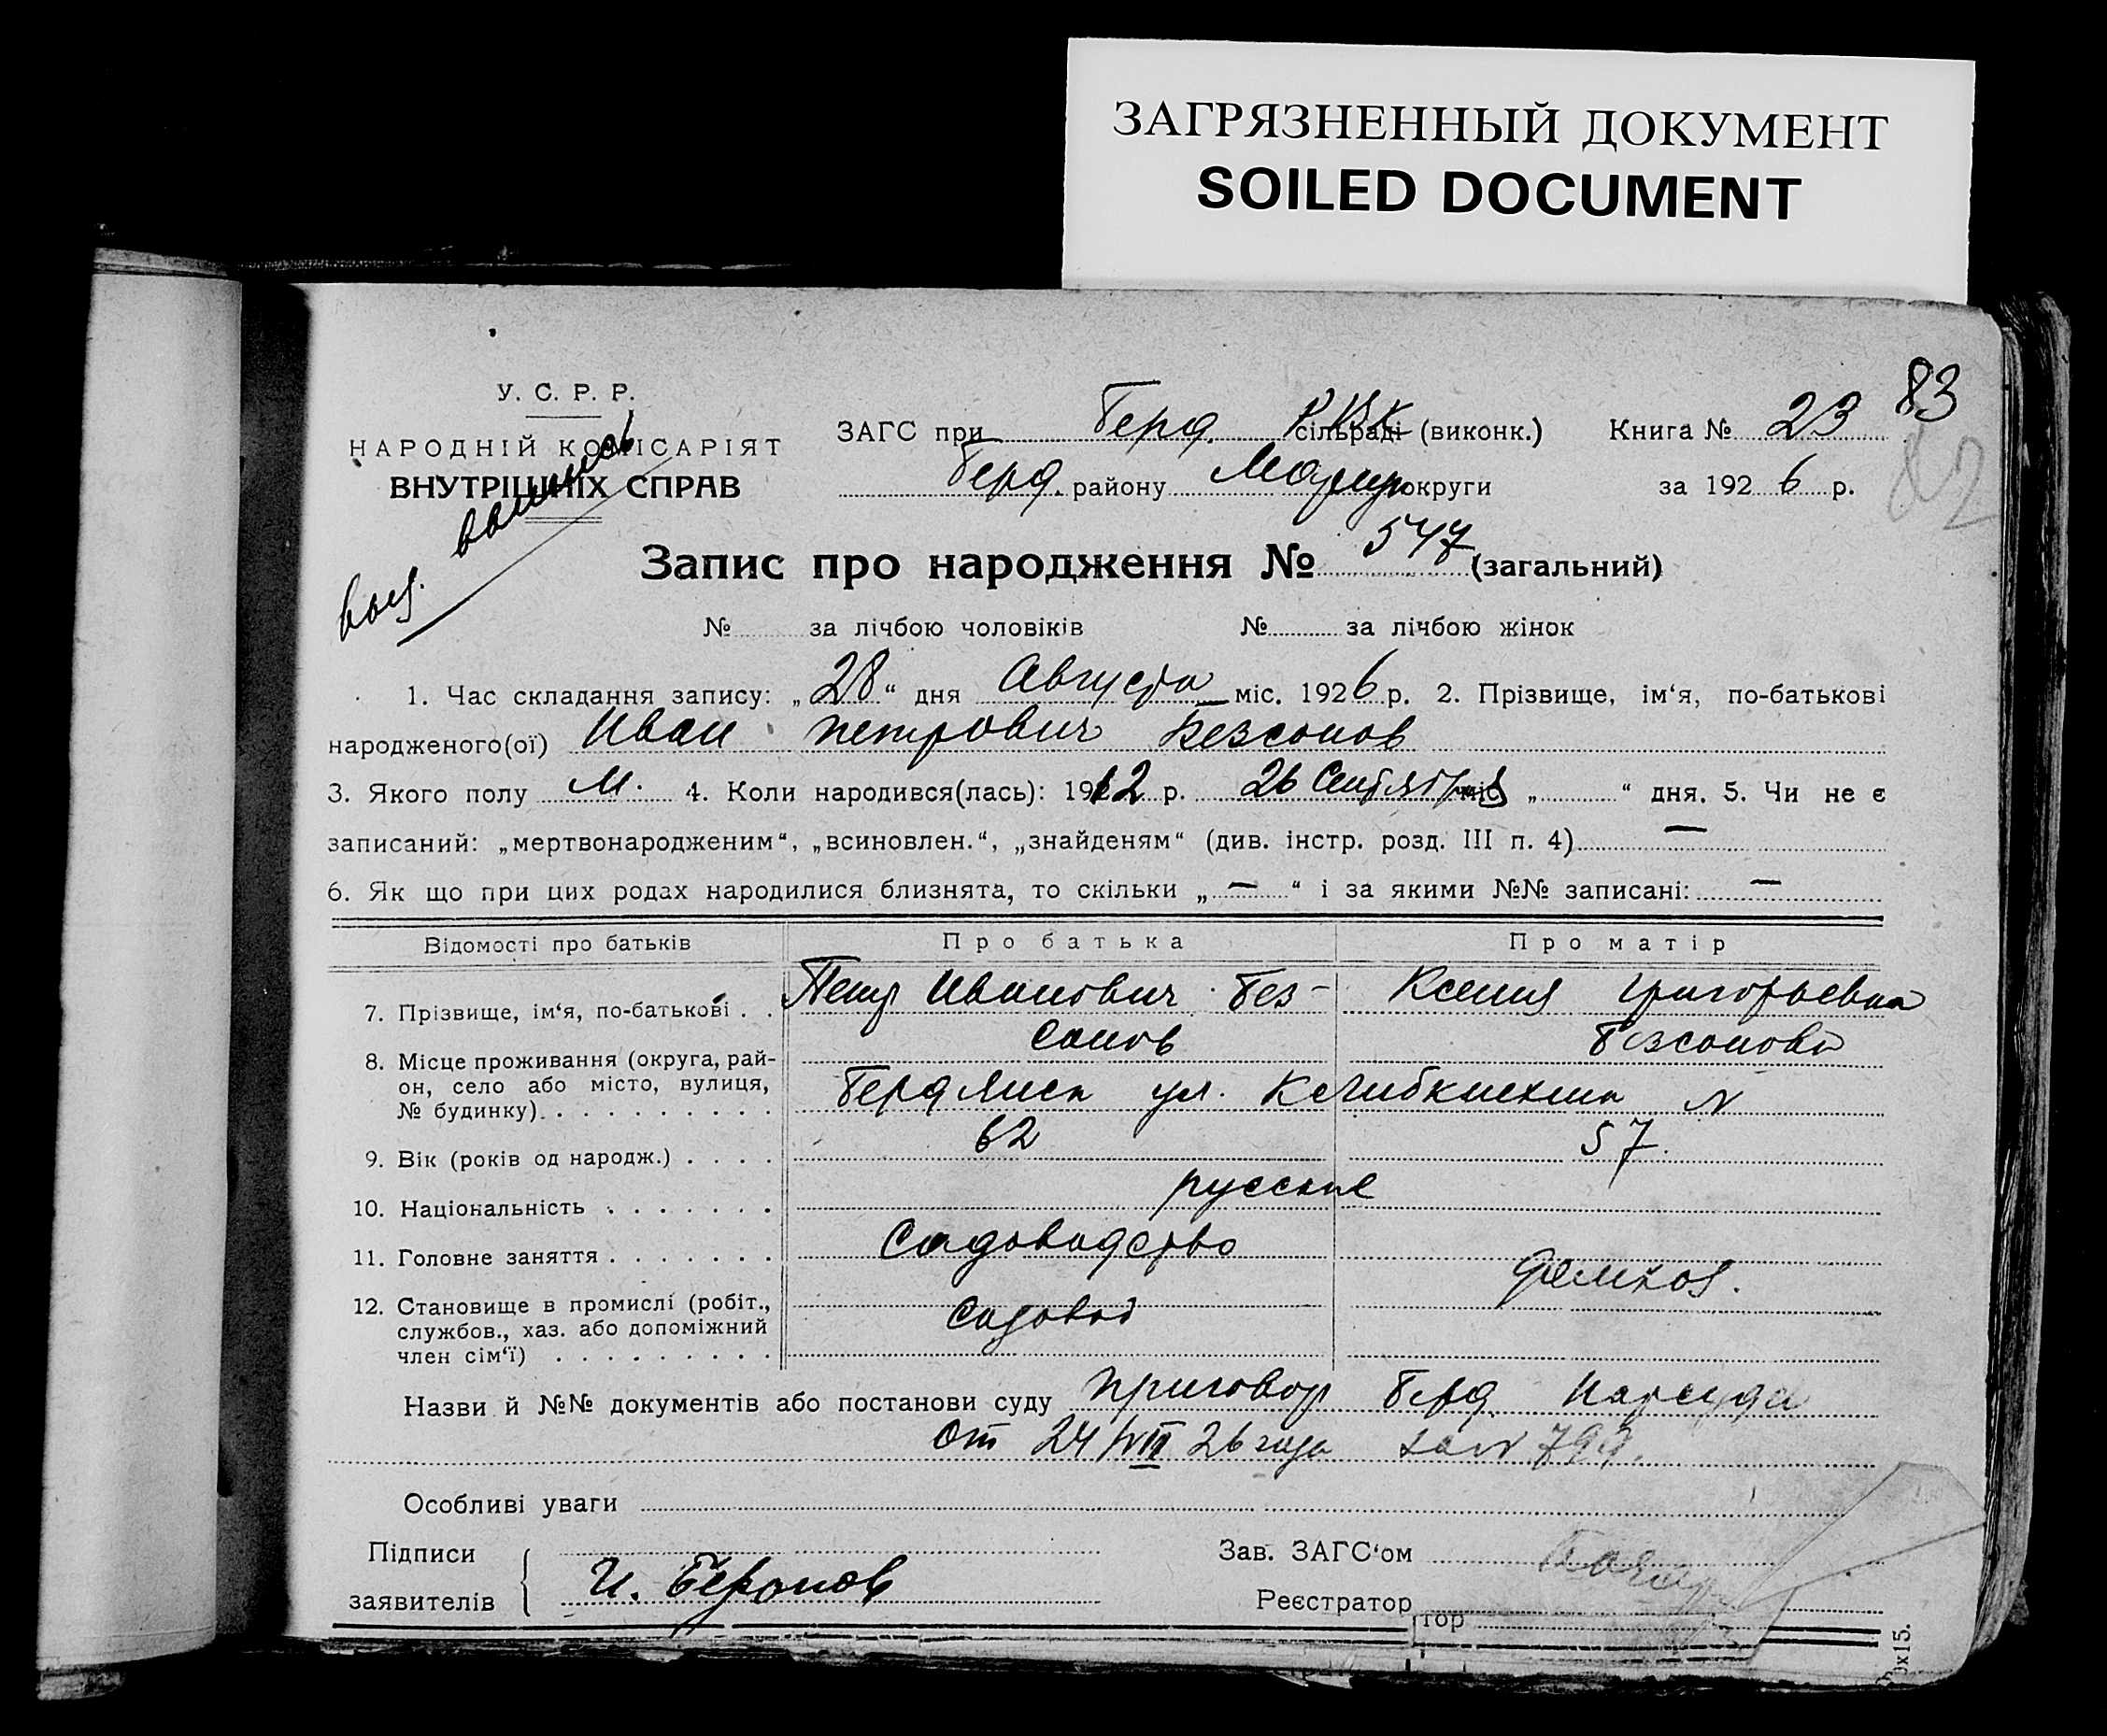 ЗАГРЯЗНЕННЫЙ ДОКУМЕНТ
SOILED DOCUMENT
83
82
У. С. Р. Р.
НАРОДНІЙ КОМІСАРІЯТ
ВНУТРІШНІХ СПРАВ
выд. выпись
ЗАГС при Берд. РВК сільраді (виконк.) Книга № 23
Берд. району Мариуп округи за 1926 р.
Запис про народження № 547 (загальний)
№ за лічбою чоловіків № за лічбою жінок
1. Час складання запису: „28“ дня Августа міс. 1926 р. 2. Прізвище, ім‘я, по-батькові
народженого(ої) Иван Петрович Безсонов
3. Якого полу м. 4. Коли народився(лась): 1912 р. 26 Сентября міс. „ “ дня. 5. Чи не є
записаний: „мертвонародженим“, „всиновлен.“, „знайденям“ (див. інстр. розд. III п. 4) —
6. Як що при цих родах народилися близнята, то скільки „ — “ і за якими №№ записані: —
Відомості про батьків Про батька Про матір
7. Прізвище, ім‘я, по-батькові . . Петр Иванович Без- Ксения Григорьевна
сонов Безсонова
8. Місце проживання (округа, рай-
он, село або місто, вулиця,
№ будинку) Бердянск ул. N
9. Вік (років од народж.) 62 57
10. Національність русские
11. Головне заняття Садоводство
12. Становище в промислі (робіт.,
службов., хаз. або допоміжний
член сім‘ї) садовод домхоз.
Назви й №№ документів або постанови суду приговор Берд. Нарсуда
от 24/VII 26 года за N
Особливі уваги
Підписи
заявителів И. Безсонов
Зав. ЗАГС‘ом
Реєстратор
тор
х15.